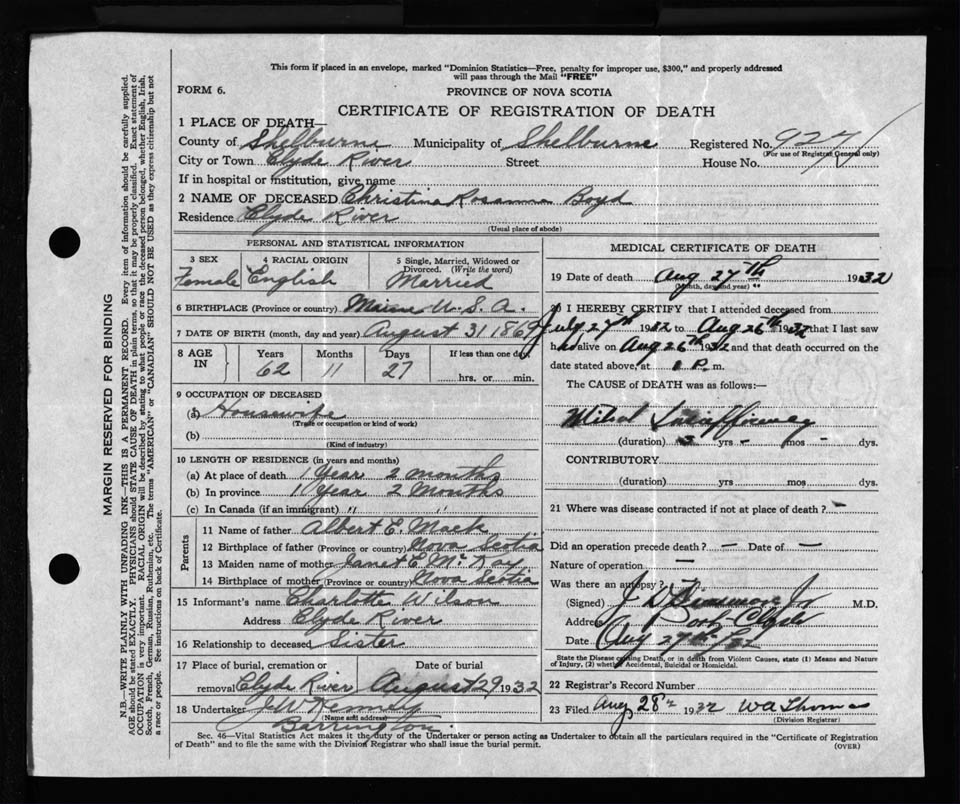 This form if placed in an envelope, marked "Dominion Statistics—Free, penalty for improper use, $300," and properly addressed
will pass through the Mail "FREE"
FORM 6.
PROVINCE OF NOVA SCOTIA
CERTIFICATE OF REGISTRATION OF DEATH
1 PLACE OF DEATH—
County of Shelburne Municipality of Shelburne Registered No. 927
(For use of Registrar General only)
City or Town Clyde River Street House No.
If in hospital or institution, give name
2 NAME OF DECEASED Christina Rosanna Boyd
Residence Clyde River
(Usual place of abode)
PERSONAL AND STATISTICAL INFORMATION
3 SEX 4 RACIAL ORIGIN 5 Single, Married, Widowed or
Divorced. (Write the word)
Female English Married
6 BIRTHPLACE (Province or country) Maine U.S.A.
7 DATE OF BIRTH (month, day and year) August 31 1869
8 AGE IN Years Months Days If less than one day,
62 11 27 hrs. or min.
9 OCCUPATION OF DECEASED
(a) Housewife
(Trade or occupation or kind of work)
(b)
(Kind of industry)
10 LENGTH OF RESIDENCE (in years and months)
(a) At place of death 1 Year 2 months
(b) In province 1 Year 2 Months
(c) In Canada (if an immigrant) " "
Parents
11 Name of father Albert E. Mack
12 Birthplace of father (Province or country) Nova Scotia
13 Maiden name of mother Janet E. McKay
14 Birthplace of mother (Province or country) Nova Scotia
15 Informant's name Charlotte Wilson
Address Clyde River
16 Relationship to deceased Sister
17 Place of burial, cremation or Date of burial
removal Clyde River August 29 1932
18 Undertaker J.W. Kennedy
(Name and address)
Barrington.
MEDICAL CERTIFICATE OF DEATH
19 Date of death Aug 27th 1932
(Month, day and year)
20 I HEREBY CERTIFY that I attended deceased from
July 27th 1932 to Aug 26th 1932 that I last saw
h alive on Aug 26th 1932 and that death occurred on the
date stated above, at P. m.
The CAUSE OF DEATH was as follows:—
Mitral Insufficiency
(duration) yrs – mos – dys.
CONTRIBUTORY
(duration) yrs mos dys.
21 Where was disease contracted if not at place of death? –
Did an operation precede death? – Date of –
Nature of operation –
Was there an autopsy?
(Signed) M.D.
Address Port Clyde
Date Aug 27th/32
State the Disease causing Death, or in death from Violent Causes, state (1) Means and Nature
of Injury, (2) whether Accidental, Suicidal or Homicidal.
22 Registrar's Record Number
23 Filed Aug 28th 1932 W A Thomas
(Division Registrar)
Sec. 46—Vital Statistics Act makes it the duty of the Undertaker or person acting as Undertaker to obtain all the particulars required in the "Certificate of Registration
of Death" and to file the same with the Division Registrar who shall issue the burial permit.
(OVER)
MARGIN RESERVED FOR BINDING
N.B.—WRITE PLAINLY WITH UNFADING INK—THIS IS A PERMANENT RECORD. Every item of information should be carefully supplied.
AGE should be stated EXACTLY. PHYSICIANS should STATE CAUSE OF DEATH in plain terms, so that it may be properly classified. Exact statement of
OCCUPATION is very important. RACIAL ORIGIN will be described by stating to what people or race the deceased person belonged, whether English, Irish,
Scotch, French, German, Russian, Ruthenian, etc. The terms "AMERICAN" or "CANADIAN" SHOULD NOT BE USED as they express citizenship but not
a race or people. See instructions on back of Certificate.